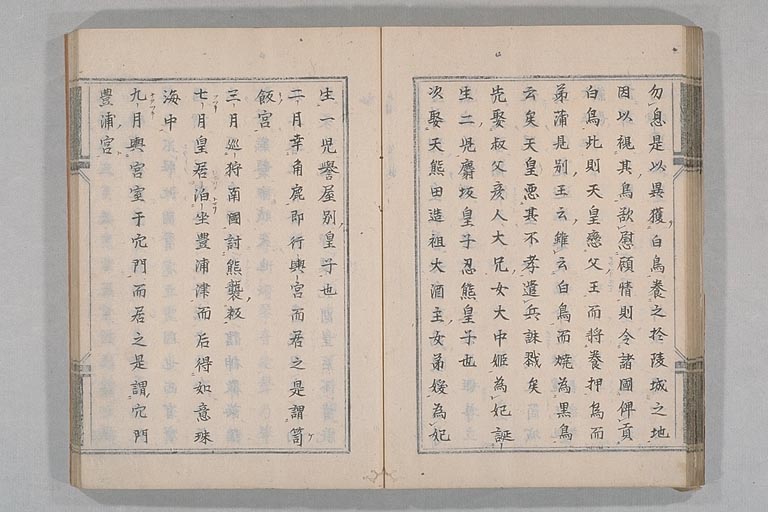 勿息是以異獲白鳥養之於陵域之地
因以視其鳥欲慰顧情則令諸國俾貢
白鳥此則天皇戀父王而將養押鳥而
弟蒲見別王云雖云白鳥而燒為黒鳥
云矣天皇悪其不孝遣兵誅戮矣
先娶叔父彦人大兄女大中姫為妃誕
生二児麛坂皇子忍熊皇子也
次娶天熊田造祖大酒主女弟媛為妃
生一児譽屋別皇子也
二月幸角鹿即行興宮而居之是謂笥
飯宮
三月巡狩南國討熊襲叛
七月皇居泊坐豊浦津而后得如意珠
海中
九月興宮室于穴門而居之是謂穴門
豊浦宮